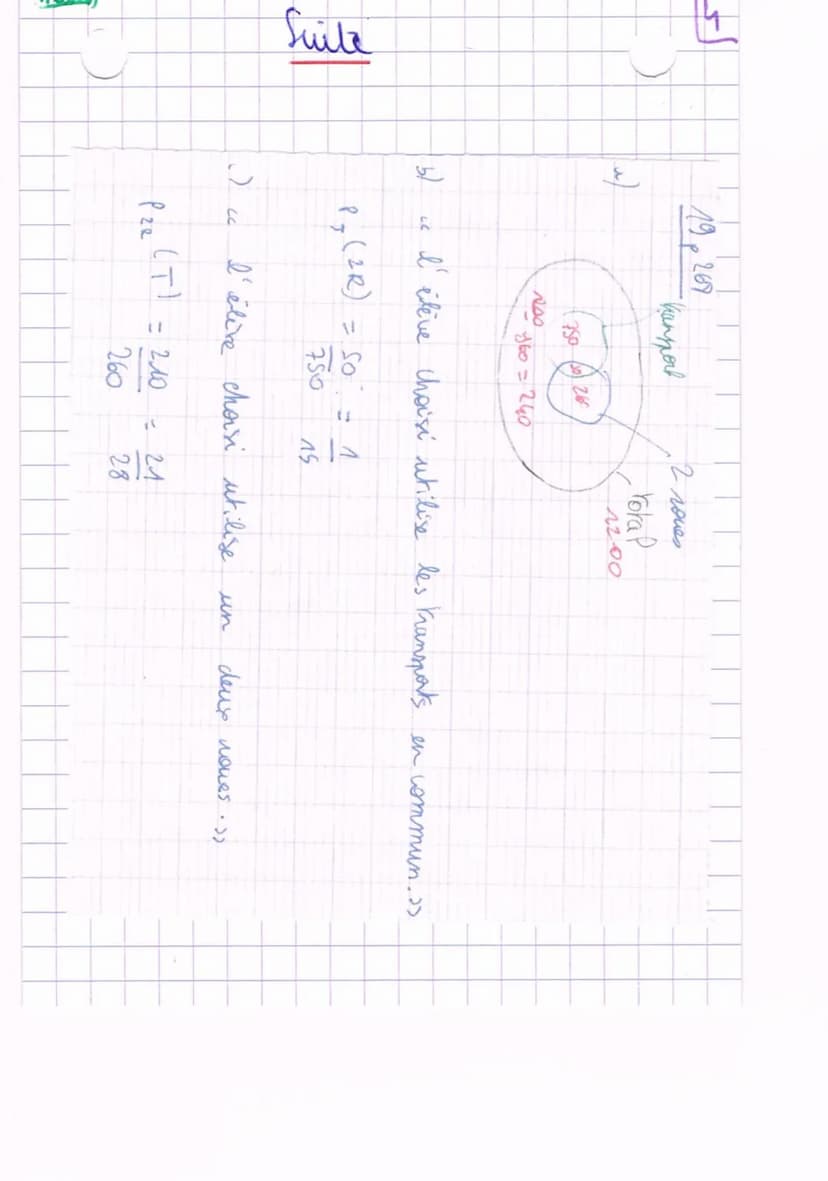 Suite
19 p 267
a)
transport
2 roues
Total
1200
750
50
1200 - 960 = 240
b) " l'élève choisi utilise les transports en commun. »
P_T (2R) = 50/750 = 1/15
c) " l'élève choisi utilise un deux roues. »
P_2R (T̅) = 210/260 = 21/28